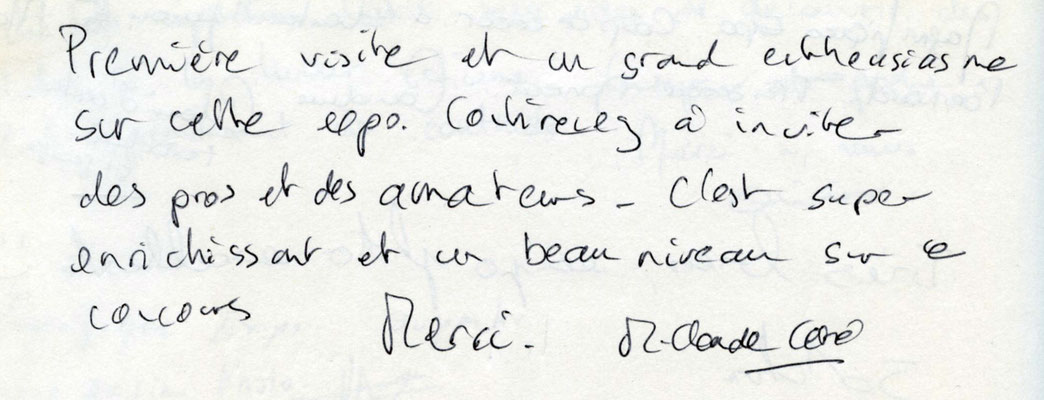 Première visite et un grand enthousiasme
sur cette expo. Continuez à inviter
des pros et des amateurs - C'est super
enrichissant et un beau niveau sur ce
concours Merci. M-Claude